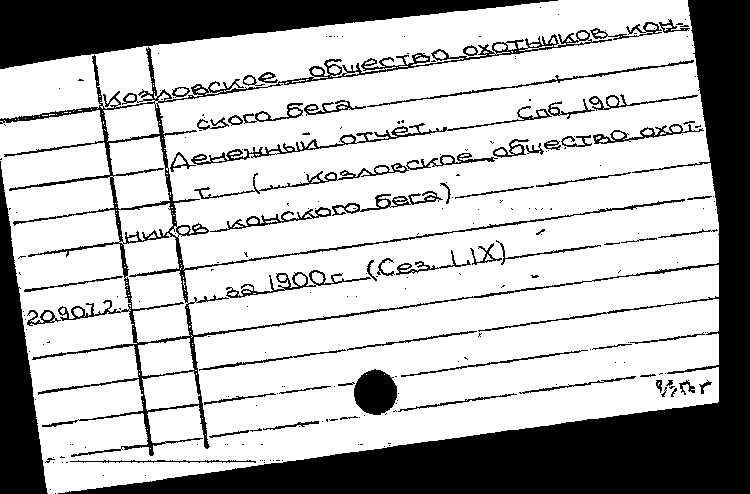 Козловское общество охотников кон=
ского бега
Денежный отчёт... Спб, 1901
т. (... Козловское общество охот=
ников конского бега)
... за 1900 г. (Сез. LIX)
20.907.2